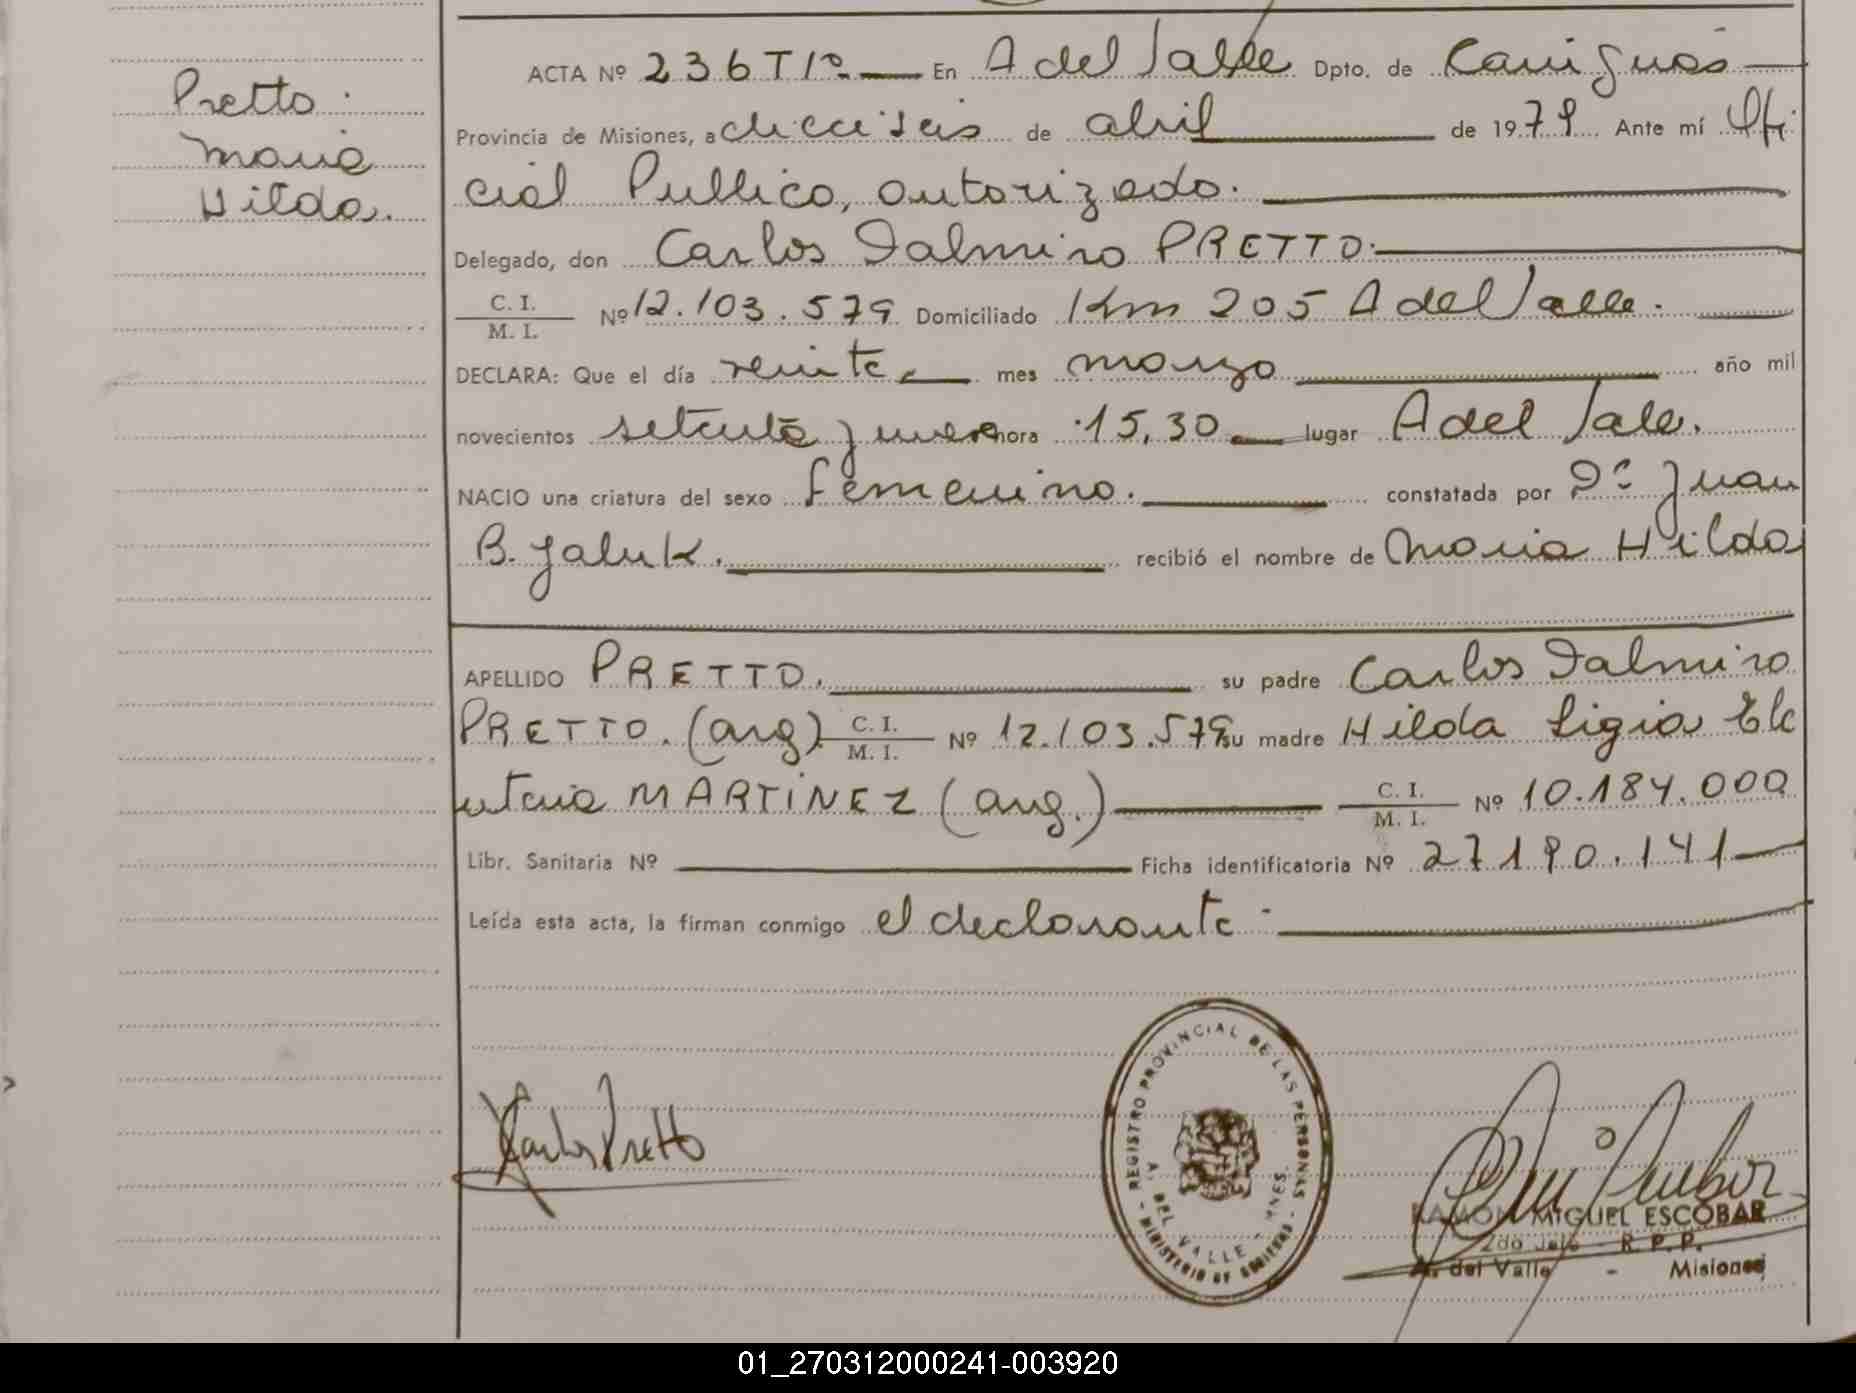 Pretto.
Maria
Hilda.
ACTA Nº 236 T1º. En A del Valle Dpto. de Cainguás
Provincia de Misiones, a dieciseis de abril de 1979 Ante mí Ofi
cial Publico, autorizado.
Delegado, don Carlos Dalmiro PRETTO.
C. I.
M. I. Nº 12.103.579 Domiciliado Km 205 A del Valle.
DECLARA: Que el día veinte mes marzo año mil
novecientos setenta y nueve hora 15,30 lugar A del Valle.
NACIO una criatura del sexo femenino. constatada por Dr Juan
B. Yaluk. recibió el nombre de Maria Hilda
APELLIDO PRETTO. su padre Carlos Dalmiro
PRETTO. (arg) C. I. M. I. Nº 12.103.579 su madre Hilda Ligia Ele
uteria MARTINEZ (arg.) C. I. M. I. Nº 10.184.000
Libr. Sanitaria Nº Ficha identificatoria Nº 27190.141
Leída esta acta, la firman conmigo el declarante
Carlos Pretto
REGISTRO PROVINCIAL DE LAS PERSONAS
A. DEL VALLE - MNES.
- MINISTERIO DE GOBIERNO -
RAMON MIGUEL ESCOBAR
2do Jefe - R. P. P.
A. del Valle - Misiones
01_270312000241-003920